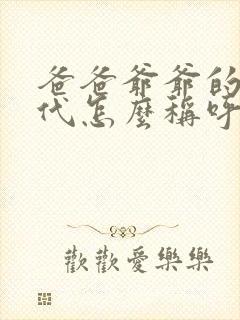 爸爸爺爺的
代怎麼稱呼
歡歡愛樂樂